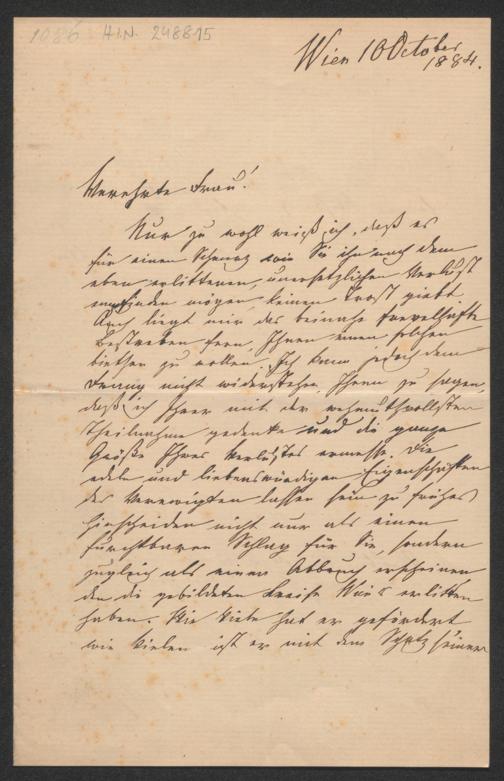 1086 H.I.N. 248815
Wien 10 October
1884.
Verehrte Frau!
Nur zu wohl weiß ich, daß es
für einen Schmerz wie Sie ihn nach dem
eben erlittenen, unersetzlichen Verlust
empfinden mögen, keinen Trost giebt.
Auch liegt mir das beinahe frevelhafte
Bestreben fern, Ihnen einen solchen
biethen zu wollen. Ich kann jedoch dem
Drang nicht widerstehen, Ihnen zu sagen,
daß ich Ihrer mit der wehmuthvollsten
Theilnahme gedenke und die ganze
Größe Ihres Verlustes ermesse. Die
edeln und liebenswürdigen Eigenschaften
des Verewigten lassen sein zu frühes
Hinscheiden nicht nur als einen
furchtbaren Schlag für Sie, sondern
zugleich als einen Abbruch erscheinen
den die gebildeten Kreise Wien's erlitten
haben. Wie Viele hat er gefördert
wie Vielen ist er mit dem Schatz seiner